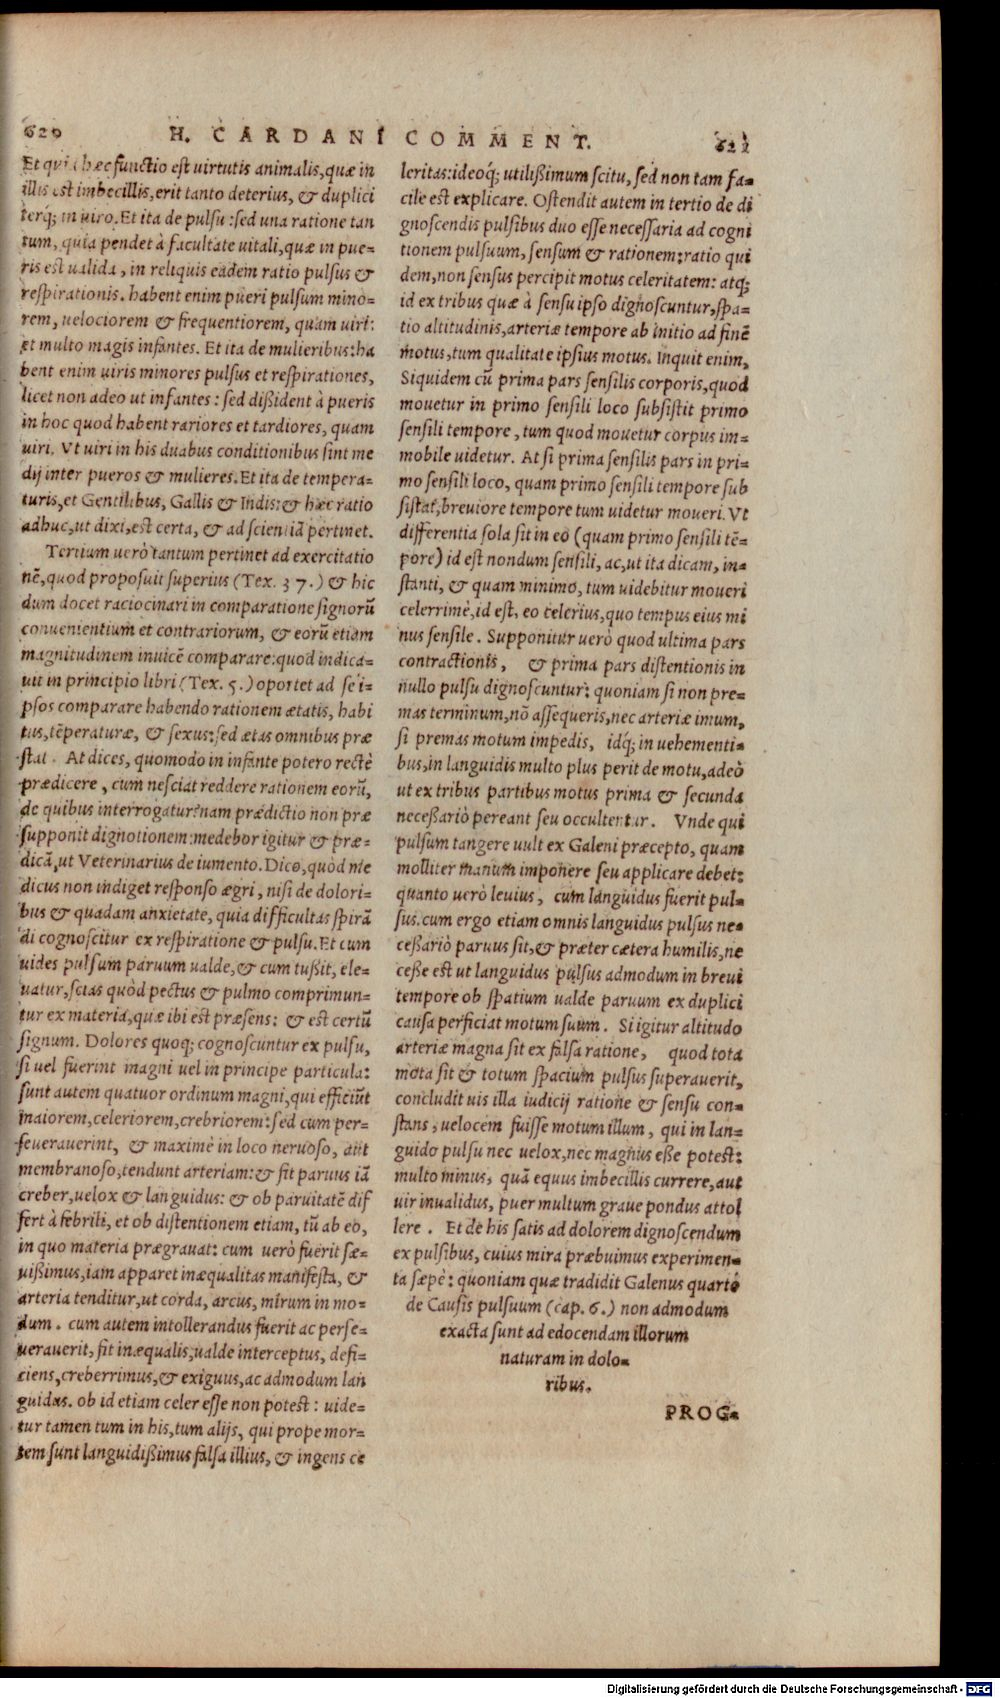 620 H. CARDANI COMMENT. 621
Et quia hæc functio est uirtutis animalis, quæ in
illis est imbecillis, erit tanto deterius, & duplici
terq́; in uiro. Et ita de pulsu: sed una ratione tan
tum, quia pendet à facultate uitali, quæ in pue-
ris est ualida, in reliquis eadem ratio pulsus &
respirationis. habent enim pueri pulsum mino-
rem, uelociorem & frequentiorem, quam uiri:
et multo magis infantes. Et ita de mulieribus: ha
bent enim uiris minores pulsus et respirationes,
licet non adeo ut infantes: sed dißident à pueris
in hoc quod habent rariores et tardiores, quam
uiri. Vt uiri in his duabus conditionibus sint me
dij inter pueros & mulieres. Et ita de tempera-
turis, et Gentilibus, Gallis & Indis: & hæc ratio
adhuc, ut dixi, est certa, & ad scientiã pertinet.
Tertium uerò tantum pertinet ad exercitatio
nẽ, quod proposuit superius (Tex. 37.) & hic
dum docet raciocinari in comparatione signorũ
conuenientium et contrariorum, & eorũ etiam
magnitudinem inuicẽ comparare: quod indica-
uit in principio libri (Tex. 5.) oportet ad sei-
psos comparare habendo rationem ætatis, habi
tus, tẽperaturæ, & sexus: sed ætas omnibus præ
stat. At dices, quomodo in infante potero rectè
prædicere, cum nesciat reddere rationem eorũ,
de quibus interrogatur? nam prædictio non præ
supponit dignotionem: medebor igitur & præ-
dicã, ut Veterinarius de iumento. Dico, quòd me
dicus non indiget responso ægri, nisi de dolori-
bus & quadam anxietate, quia difficultas spirã
di cognoscitur ex respiratione & pulsu. Et cum
uides pulsum paruum ualde, & cum tußit, ele-
uatur, scias quòd pectus & pulmo comprimun-
tur ex materia, quæ ibi est præsens: & est certũ
signum. Dolores quoq; cognoscuntur ex pulsu,
si uel fuerint magni uel in principe particula:
sunt autem quatuor ordinum magni, qui efficiũt
maiorem, celeriorem, crebriorem: sed cum per-
seuerauerint, & maximè in loco neruoso, aut
membranoso, tendunt arteriam: & fit paruus iã
creber, uelox & languidus: & ob paruitatẽ dif
fert à febrili, et ob distentionem etiam, tũ ab eo,
in quo materia prægrauat: cum uerò fuerit sæ-
uißimus, iam apparet inæqualitas manifesta, &
arteria tenditur, ut corda, arcus, mirum in mo-
dum. cum autem intollerandus fuerit ac perse-
uerauerit, fit inæqualis, ualde interceptus, defi-
ciens, creberrimus, & exiguus, ac admodum lan
guidus. ob id etiam celer esse non potest: uide-
tur tamen tum in his, tum alijs, qui prope mor-
tem sunt languidißimus falsa illius, & ingens ce
leritas: ideoq́; utilißimum scitu, sed non tam fa-
cile est explicare. Ostendit autem in tertio de di
gnoscendis pulsibus duo esse necessaria ad cogni
tionem pulsuum, sensum & rationem: ratio qui
dem, non sensus percipit motus celeritatem: atq;
id ex tribus quæ à sensu ipso dignoscuntur, spa-
tio altitudinis, arteriæ tempore ab initio ad finẽ
motus, tum qualitate ipsius motus. Inquit enim,
Siquidem cũ prima pars sensilis corporis, quod
mouetur in primo sensili loco subsistit primo
sensili tempore, tum quod mouetur corpus im-
mobile uidetur. At si prima sensilis pars in pri-
mo sensili loco, quam primo sensili tempore sub
sistat, breuiore tempore tum uidetur moueri. Vt
differentia sola sit in eo (quam primo sensili tẽ-
pore) id est nondum sensili, ac, ut ita dicam, in-
stanti, & quam minimo, tum uidebitur moueri
celerrimè, id est, eo celerius, quo tempus eius mi
nus sensile. Supponitur uerò quod ultima pars
contractionis, & prima pars distentionis in
nullo pulsu dignoscuntur: quoniam si non pre-
mas terminum, nõ assequeris, nec arteriæ imum,
si premas motum impedis, idq́; in uehementi-
bus, in languidis multo plus perit de motu, adeò
ut ex tribus partibus motus prima & secunda
necessariò pereant seu occultentur. Vnde qui
pulsum tangere uult ex Galeni præcepto, quam
molliter manum imponere seu applicare debet:
quanto uerò leuius, cum languidus fuerit pul-
sus. cum ergo etiam omnis languidus pulsus ne-
ceßariò paruus sit, & præter cætera humilis, ne
ceße est ut languidus pulsus admodum in breui
tempore ob spatium ualde paruum ex duplici
causa perficiat motum suum. Si igitur altitudo
arteriæ magna sit ex falsa ratione, quod tota
mota sit & totum spacium pulsus superauerit,
concludit uis illa iudicij ratione & sensu con-
stans, uelocem fuisse motum illum, qui in lan-
guido pulsu nec uelox, nec magnus eße potest:
multo minus, quã equus imbecillis currere, aut
uir inualidus, puer multum graue pondus attol
lere. Et de his satis ad dolorem dignoscendum
ex pulsibus, cuius mira præbuimus experimen-
ta sæpè: quoniam quæ tradidit Galenus quarto
de Causis pulsuum (cap. 6.) non admodum
exacta sunt ad edocendam illorum
naturam in dolo-
ribus.
PROG-
Digitalisierung gefördert durch die Deutsche Forschungsgemeinschaft - DFG